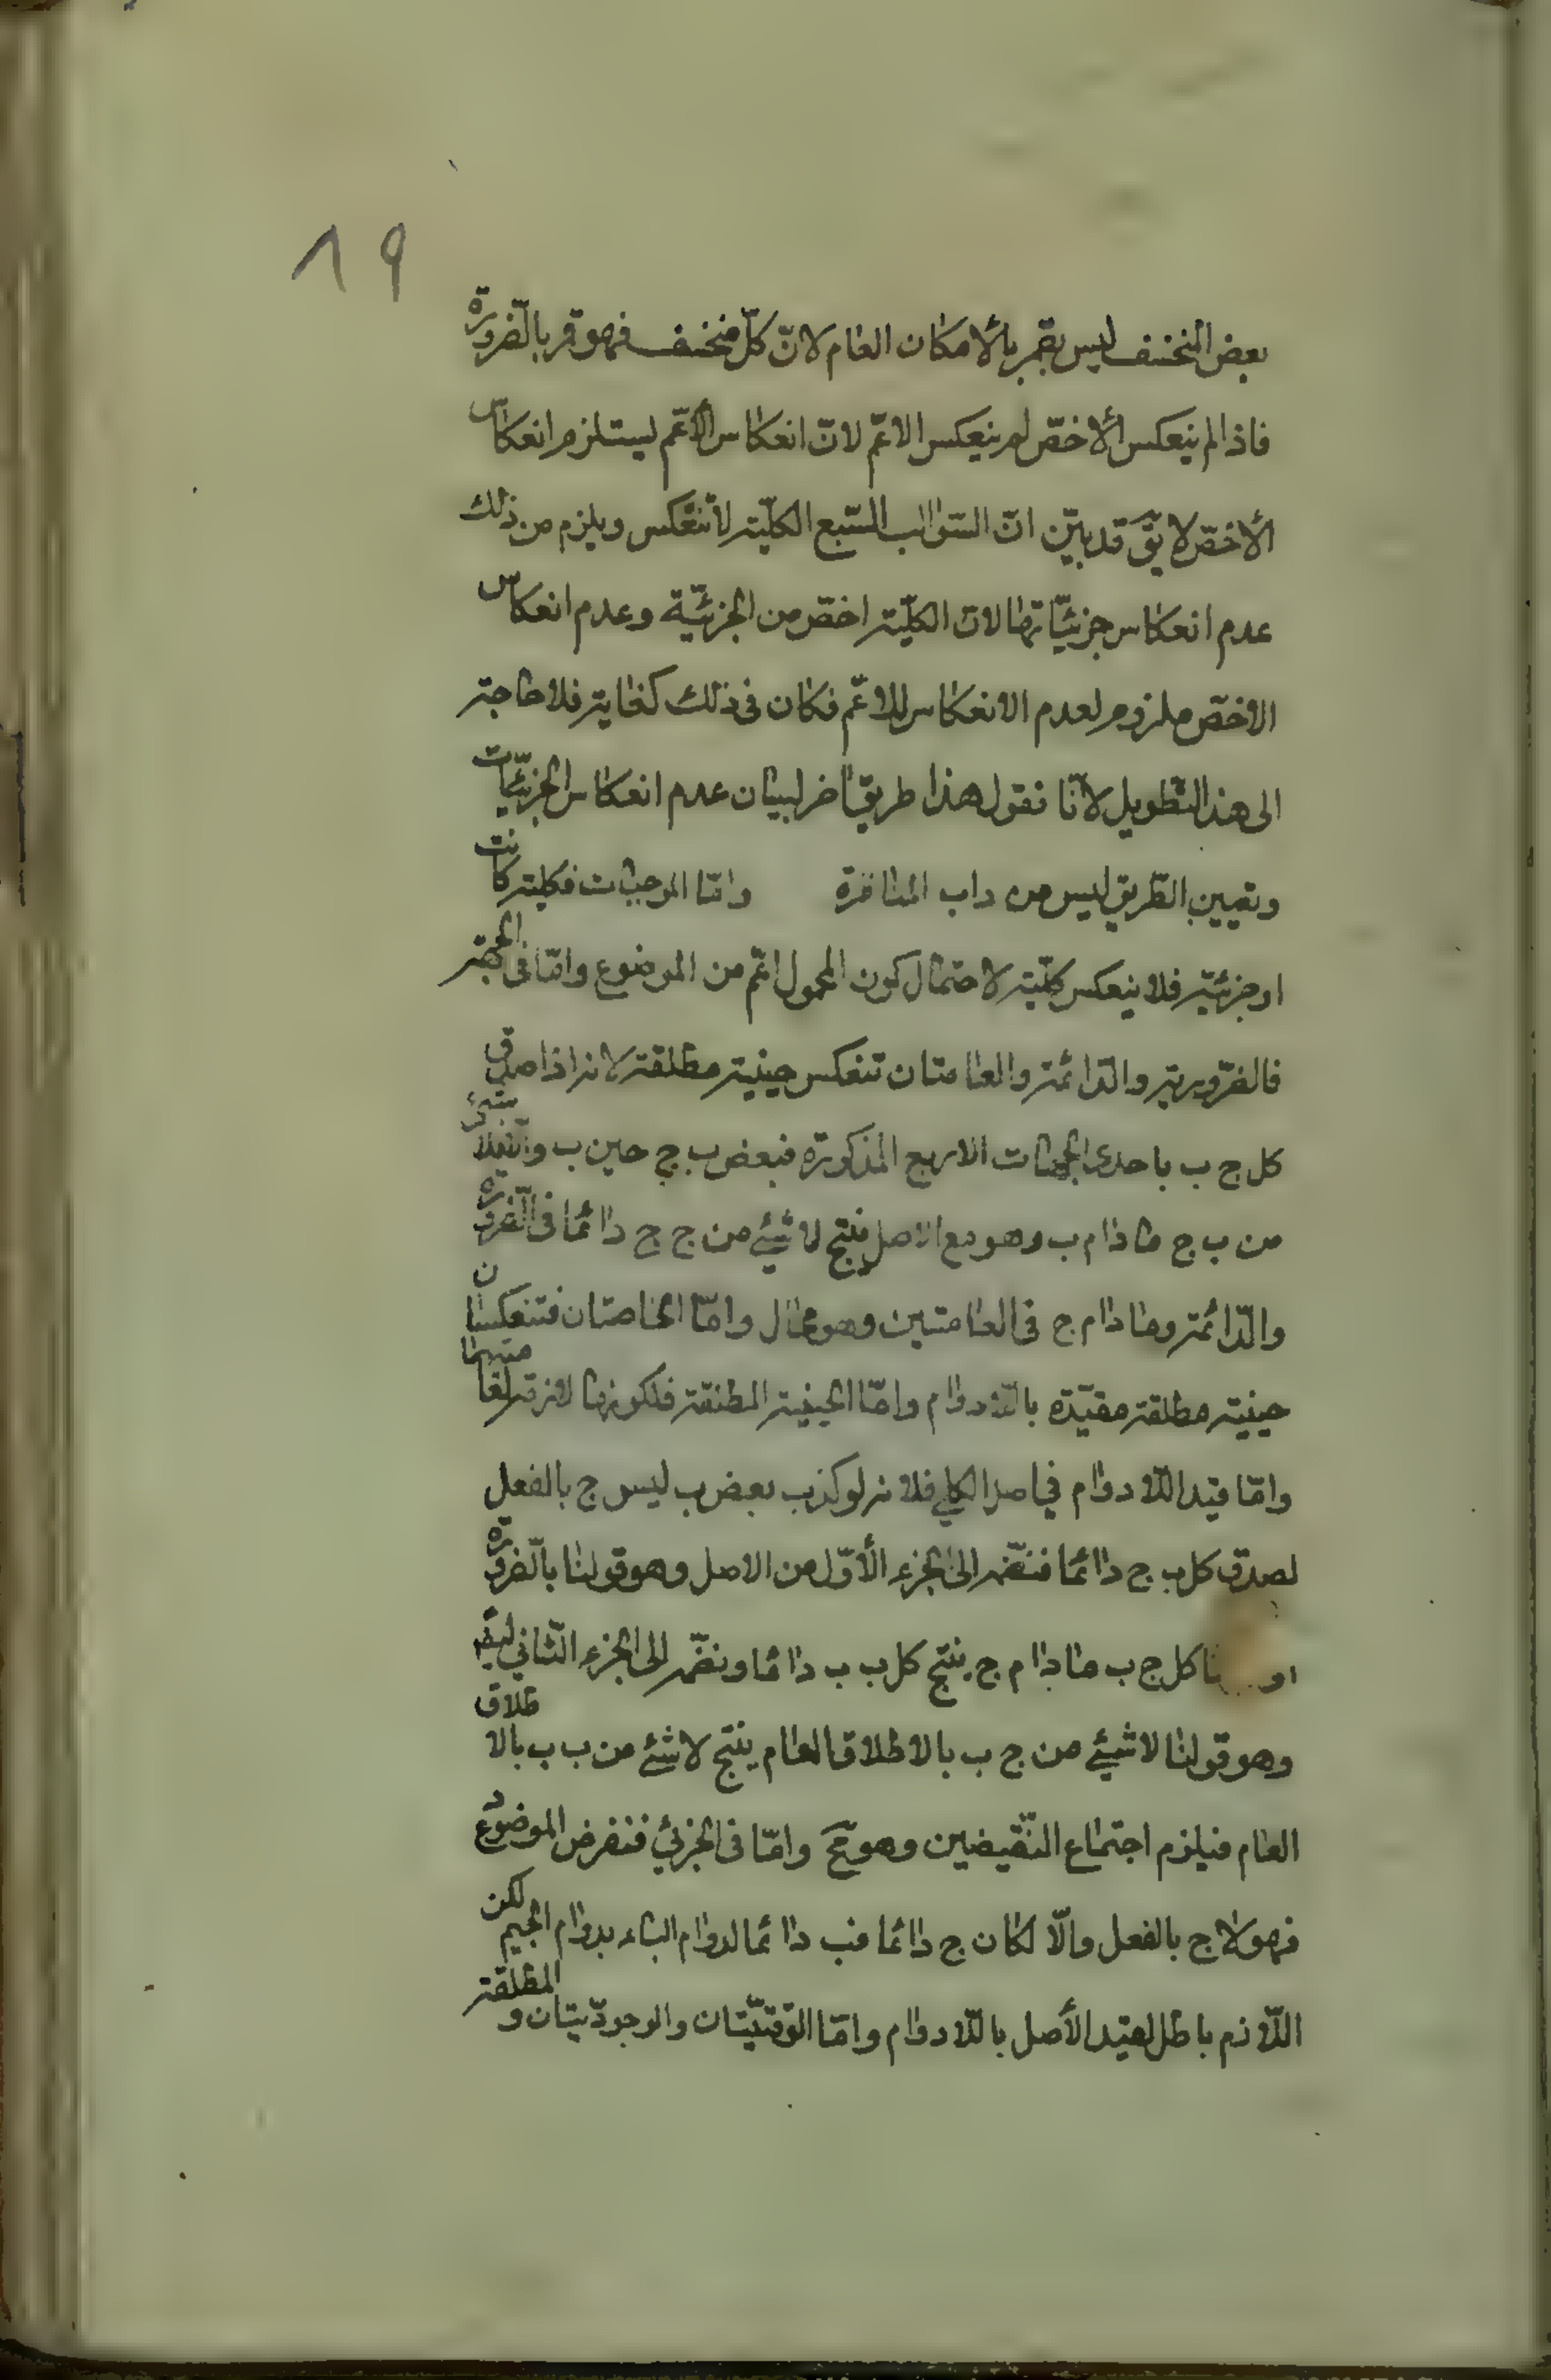 ٨٩
بعض المنخسف ليس بقمر بالأمكان العام لانّ كلّ منخسف فهو قمر بالضّرورة
فاذا لم ينعكس الأخصّ لم ينعكس الاعمّ لانّ انعكاس الأعمّ ليستلزم انعكاس
الأخصّ لا يقّ قد بيّن انّ السّوالب السّبع الكليّة لا تنعكس ويلزم من ذلك
عدم انعكاس جزئيّاتها لان الكليّة اخصّ من الجزئيّة وعدم انعكاس
الاخصّ ملزوم لعدم الانعكاس للاعمّ فكان فى ذلك كفاية فلا حاجة
الى هذا التّطويل لأنّا نقول هذا طريق اخر لبيان عدم انعكاس الجزئيّات
وتعيين الطّريق ليس من داب المناظرة وامّا الموجبات فكلية كانت
او جزئيّة فلا ينعكس كليّة لاحتمال كون المحمول اعمّ من الموضوع وامّا فى الجهة
فالضّروريّة والدّائمة والعامتان تنعكس حينية مطلقة لانه اذا صدق
كل ج ب باحدى الجهات الاربع المذكورة فبعض ب ج حين ب والّا فلا شئ
من ب ج ما دام ب وهو مع الاصل ينتج لا شئ من ج ج دائما فى الضّرورة
والدّائمة وما دام ج فى العامتين وهو محال وامّا الخاصتان فتنعكسان
حينية مطلقة مقيّدة باللّادوام وامّا الحينية المطلقة فلكونها لازمة لعامتيهما
وامّا قيد اللّادوام في اصل الكلي فلانه لو كذب بعض ب ليس ج بالفعل
لصدق كل ب ج دائما فنضّمه الى الجزء الأوّل من الاصل وهو قولنا بالضّرورة
او كل ج ب ما دام ج ينتج كل ب ب دائما ونضّمه الى الجزء الثّاني ايضا
وهو قولنا لا شئ من ج ب بالاطلاق العام ينتج لا شئ من ب ب بالاطلاق
العام فيلزم اجتماع النّقيضين وهو مح وامّا فى الجزئي فنفرض الموضوع د
فهو لا ج بالفعل والّا لكان ج دائما فب دائما لدوام الباء بدوام الجيم لكن
اللّازم باطل لقيد الأصل باللّادوام وامّا الوقتيّتان والوجوديّتان والمطلقة